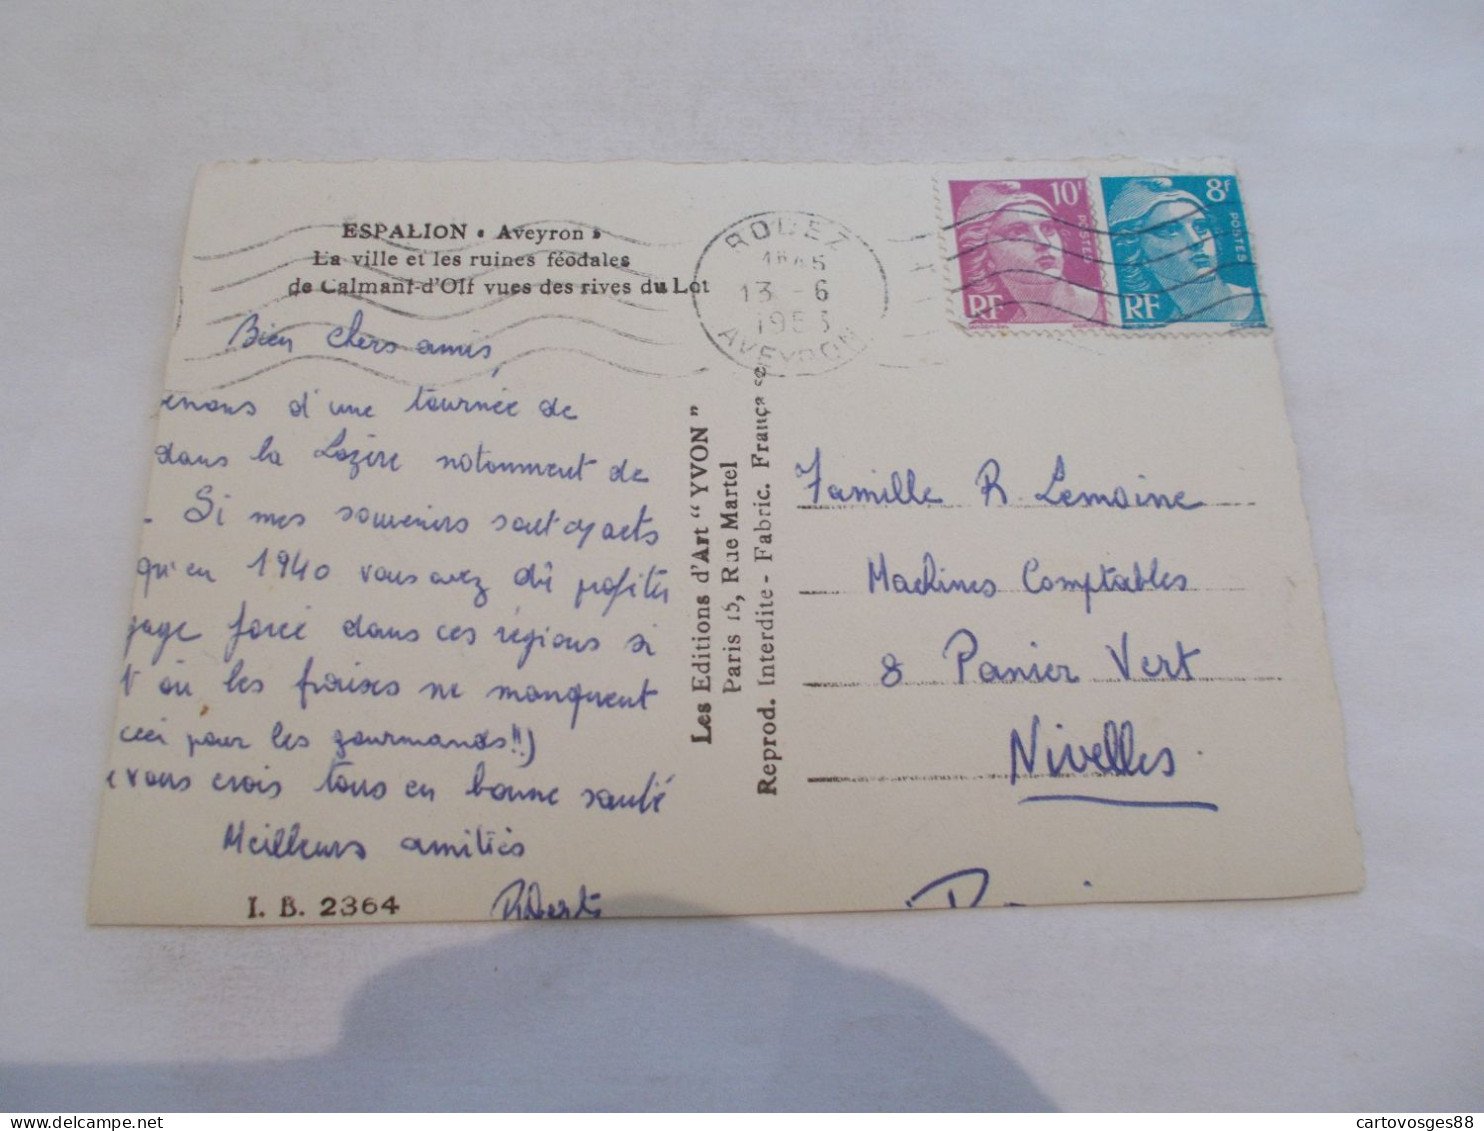 ESPALION « Aveyron »
La ville et les ruines féodales
de Calmant-d'Olt vues des rives du Lot
Bien chers amis,
enons d'une tournée de
dans la Lozère notamment de
. Si mes souvenirs sont exacts
qu'en 1940 vous avez dû profiter
gage forcé dans ces régions si
t où les fraises ne manquent
ceci pour les gourmands!!)
vous crois tous en bonne santé
Meilleurs amitiés
I. B. 2364
Les Editions d'Art "YVON"
Paris 15, Rue Martel
Reprod. Interdite - Fabric. Française
RODEZ
13 - 6
1953
AVEYRON
10F
POSTES
RF
8F
POSTES
RF
Famille R Lemoine
Machines Comptables
8 Panier Vert
Nivelles.
cartovosges88